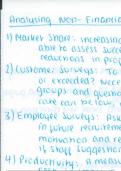 Analysing Non-Financia
1) Market Share: increasing
able to assess succe
reductions in prof
2) Customer surveys: To
or even
groups and question
care can be low,
3) Employee Surveys: As
in future recruitme
motivation and re
if staff suggestion
4) Productivity: A meas